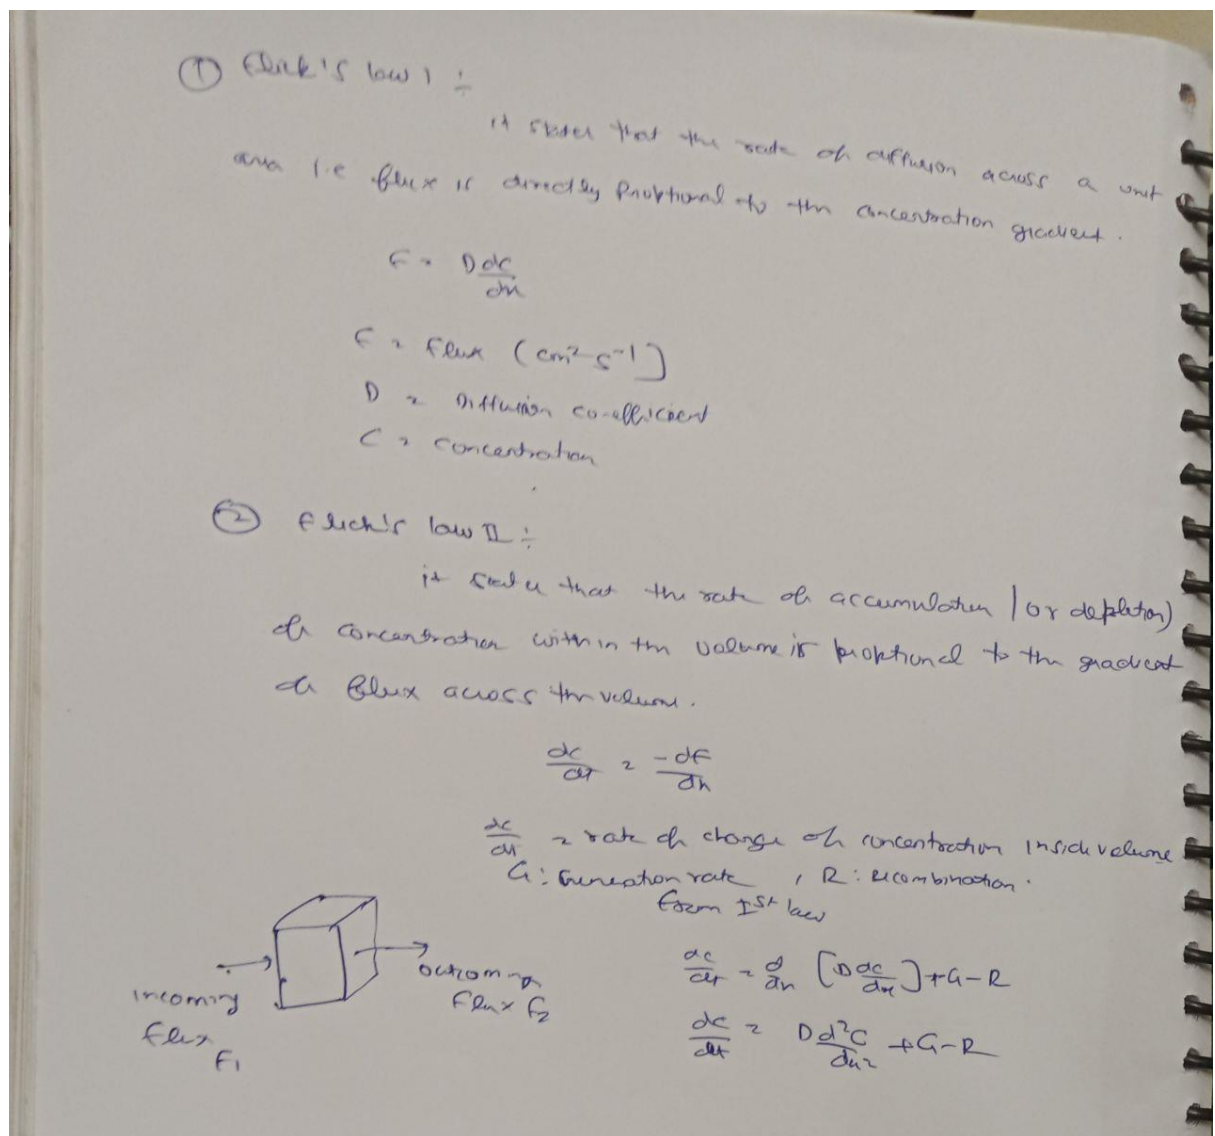 ① Flick's law 1 ÷
it states that the rate of diffusion across a unit
area i.e flux is directly Proptional to the concentration gradient.
F = D dc/dx
F = Flux (cm² s⁻¹)
D = Diffusion co-efficient
C = concentration
② Flick's law II ÷
it states that the rate of accumulation (or depletion)
of concentration within the volume is proptional to the gradient
of flux across the volume.
dc/dt = -dF/dx
dc/dt = rate of change of concentration inside volume
G: Generation rate , R: recombination.
from Ist law
dc/dt = d/dx [D dc/dx] + G - R
dc/dt = D d²C/dx² + G - R
incoming
flux
F1
outcoming
flux F2